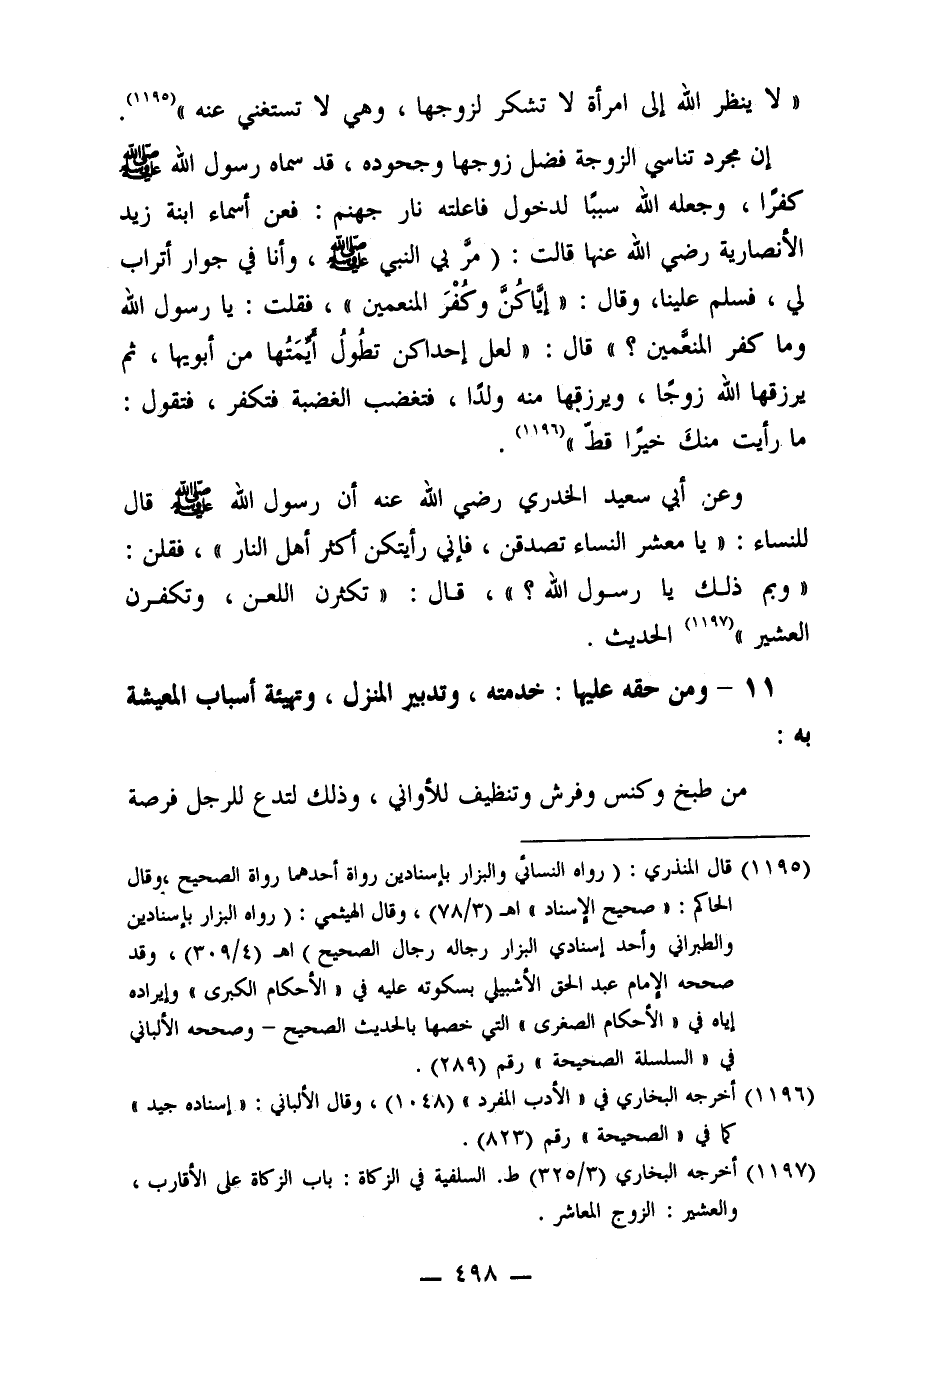 « لا ينظر الله إلى امرأة لا تشكر لزوجها ، وهي لا تستغني عنه »(١١٩٥).
إن مجرد تناسي الزوجة فضل زوجها وجحوده ، قد سماه رسول الله ﷺ
كفرًا ، وجعله الله سببًا لدخول فاعلته نار جهنم : فعن أسماء ابنة زيد
الأنصارية رضي الله عنها قالت : ( مرَّ بي النبي ﷺ ، وأنا في جوار أتراب
لي ، فسلم علينا، وقال : « إيَّاكُنَّ وكُفْرَ المنعمين » ، فقلت : يا رسول الله
وما كفر المنعَّمين ؟ » قال : « لعل إحداكن تطُولُ أَيْمَتُها من أبويها ، ثم
يرزقها الله زوجًا ، ويرزقها منه ولدًا ، فتغضب الغضبة فتكفر ، فتقول :
ما رأيت منكَ خيرًا قطّ »(١١٩٦) .
وعن أبي سعيد الخدري رضي الله عنه أن رسول الله ﷺ قال
للنساء : « يا معشر النساء تصدقن ، فإني رأيتكن أكثر أهل النار » ، فقلن :
« وبم ذلـك يا رسـول الله ؟ » ، قـال : « تكثرن اللعـن ، وتكفـرن
العشير »(١١٩٧) الحديث .
١١ – ومن حقه عليها : خدمته ، وتدبير المنزل ، وتهيئة أسباب المعيشة
به :
من طبخ وكنس وفرش وتنظيف للأواني ، وذلك لتدع للرجل فرصة
(١١٩٥) قال المنذري : ( رواه النسائي والبزار بإسنادين رواة أحدهما رواة الصحيح ،وقال
الحاكم : « صحيح الإسناد » اهـ (٧٨/٣) ، وقال الهيثمي : ( رواه البزار بإسنادين
والطبراني وأحد إسنادي البزار رجاله رجال الصحيح ) اهـ (٣٠٩/٤) ، وقد
صححه الإمام عبد الحق الأشبيلي بسكوته عليه في « الأحكام الكبرى » وإيراده
إياه في « الأحكام الصغرى » التي خصها بالحديث الصحيح – وصححه الألباني
في « السلسلة الصحيحة » رقم (٢٨٩) .
(١١٩٦) أخرجه البخاري في « الأدب المفرد » (١٠٤٨) ، وقال الألباني : « إسناده جيد »
كما في « الصحيحة » رقم (٨٢٣) .
(١١٩٧) أخرجه البخاري (٣٢٥/٣) ط. السلفية في الزكاة : باب الزكاة على الأقارب ،
والعشير : الزوج المعاشر .
— ٤٩٨ —